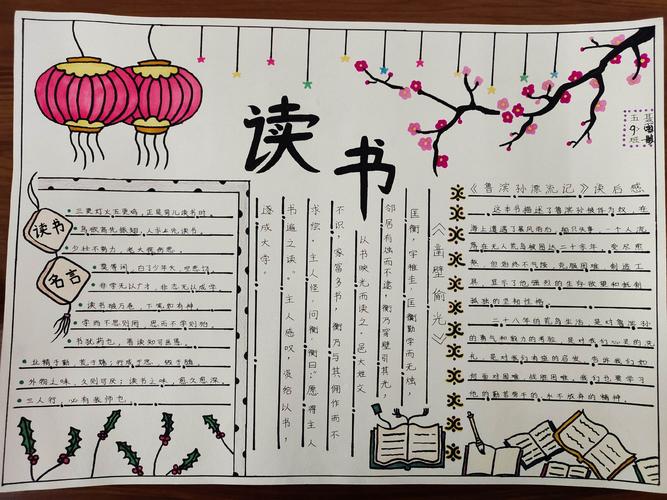 读书
五
9
班
读书
名言
三更灯火五更鸡，正是男儿读书时。
鸟欲高飞先振翅，人求上进先读书。
少壮不努力，老大徒伤悲。
莫等闲，白了少年头，空悲切
非学无以广才，非志无以成学
读书破万卷，下笔如有神
学而不思则罔，思而不学则殆
书犹药也，善读之可以医愚
业精于勤，荒于嬉；行成于思，毁于随
外物之味，久则可厌；读书之味，愈久愈深。
三人行，必有我师也。
《凿壁偷光》
匡衡，字稚圭，匡衡勤学而无烛，
邻居有烛而不逮，衡乃穿壁引其光，
以书映光而读之。邑大姓文
不识，家富多书，衡乃与其佣作而不
求偿。主人怪，问衡，衡曰：“愿得主人
书遍之读。”主人感叹，资给以书，
遂成大学。
《鲁滨孙漂流记》读后感
这本书描述了鲁滨孙候作为奴，在
海上遭遇了暴风雨后，船只失事，一个人流
落在无人荒岛被困达二十多年，受尽煎
熬，但始终不气馁，克服困难，制造工
具，显示了他强烈的生存欲望和抵制
孤独的坚韧性格。
二十八年的荒岛生活，是对鲁滨孙
的勇气和毅力的考验，是对我们心灵的洗
礼，是对我们奋进的启发，告诉我们如
何面对困难，战胜困难，我们也要学习
他的勤苦劳干的，永不放弃的精神。